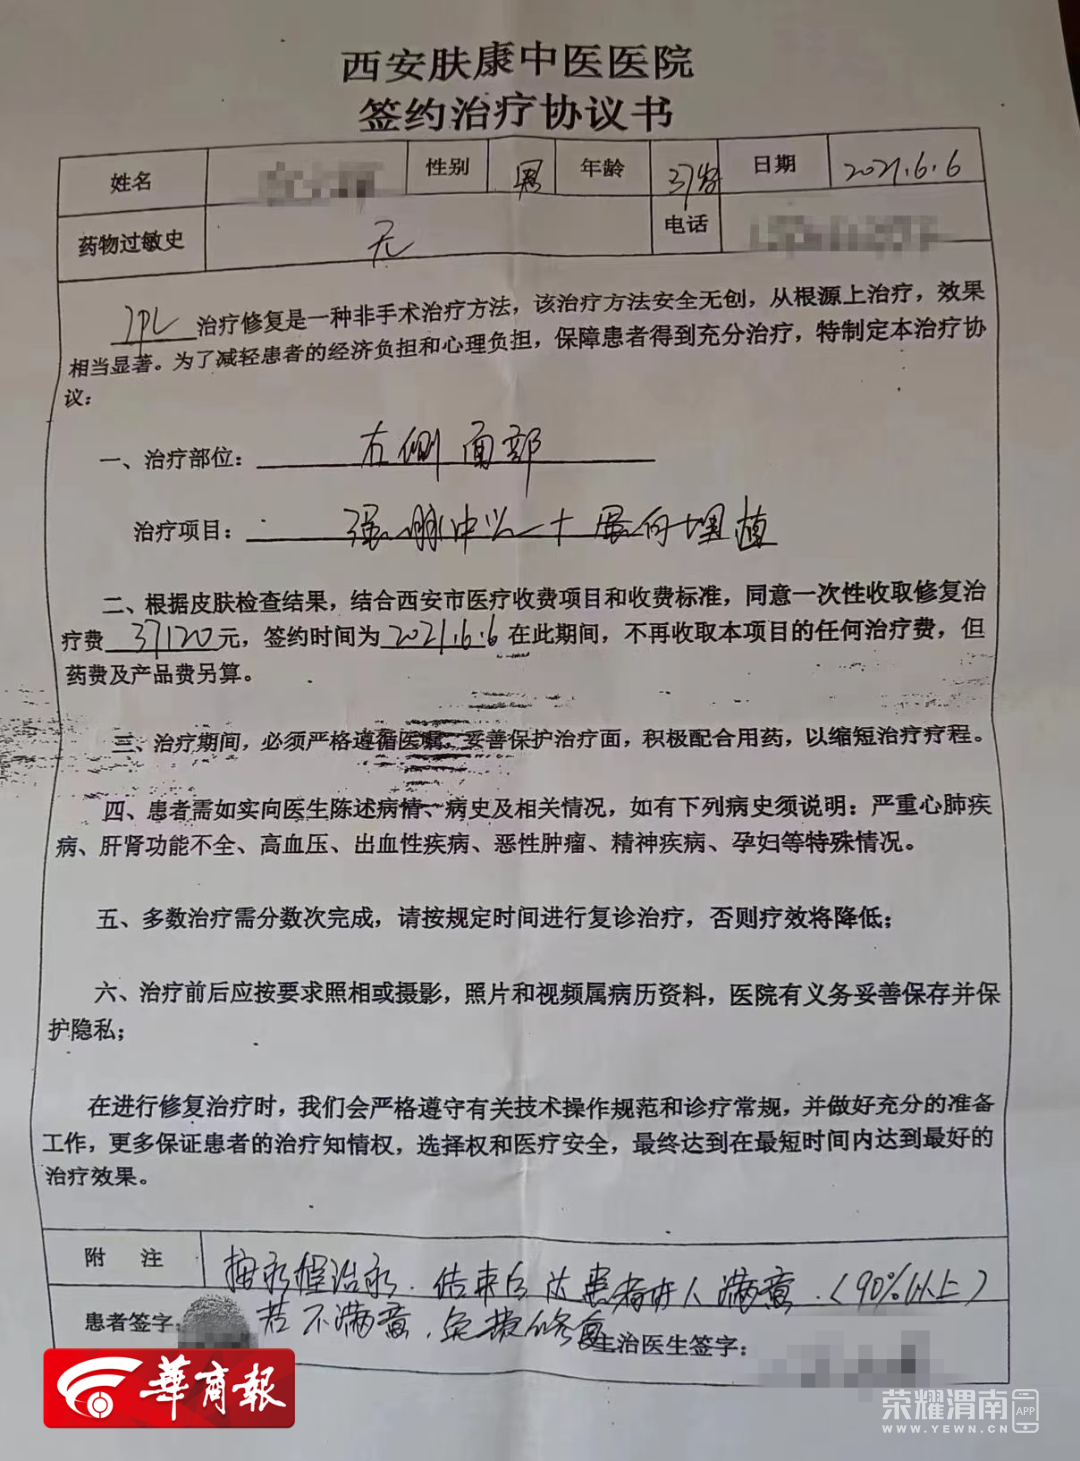 西安肤康中医医院
签约治疗协议书
姓名 性别 男 年龄 37岁 日期 2021.6.6
药物过敏史 无 电话
IPL 治疗修复是一种非手术治疗方法，该治疗方法安全无创，从根源上治疗，效果
相当显著。为了减轻患者的经济负担和心理负担，保障患者得到充分治疗，特制定本治疗协
议：
一、治疗部位： 右侧面部
治疗项目： 强脉冲光+ 埋植
二、根据皮肤检查结果，结合西安市医疗收费项目和收费标准，同意一次性收取修复治
疗费 37120 元，签约时间为 2021.6.6 在此期间，不再收取本项目的任何治疗费，但
药费及产品费另算。
三、治疗期间，必须严格遵循医嘱，妥善保护治疗面，积极配合用药，以缩短治疗疗程。
四、患者需如实向医生陈述病情、病史及相关情况，如有下列病史须说明：严重心肺疾
病、肝肾功能不全、高血压、出血性疾病、恶性肿瘤、精神疾病、孕妇等特殊情况。
五、多数治疗需分数次完成，请按规定时间进行复诊治疗，否则疗效将降低；
六、治疗前后应按要求照相或摄影，照片和视频属病历资料，医院有义务妥善保存并保
护隐私；
在进行修复治疗时，我们会严格遵守有关技术操作规范和诊疗常规，并做好充分的准备
工作，更多保证患者的治疗知情权，选择权和医疗安全，最终达到在最短时间内达到最好的
治疗效果。
附 注 治疗，结束后达患者本人满意．（90%以上）
若不满意，免费修复
患者签字： 主治医生签字：
華商報
荣耀渭南 APP
WWW.YEWN.CN